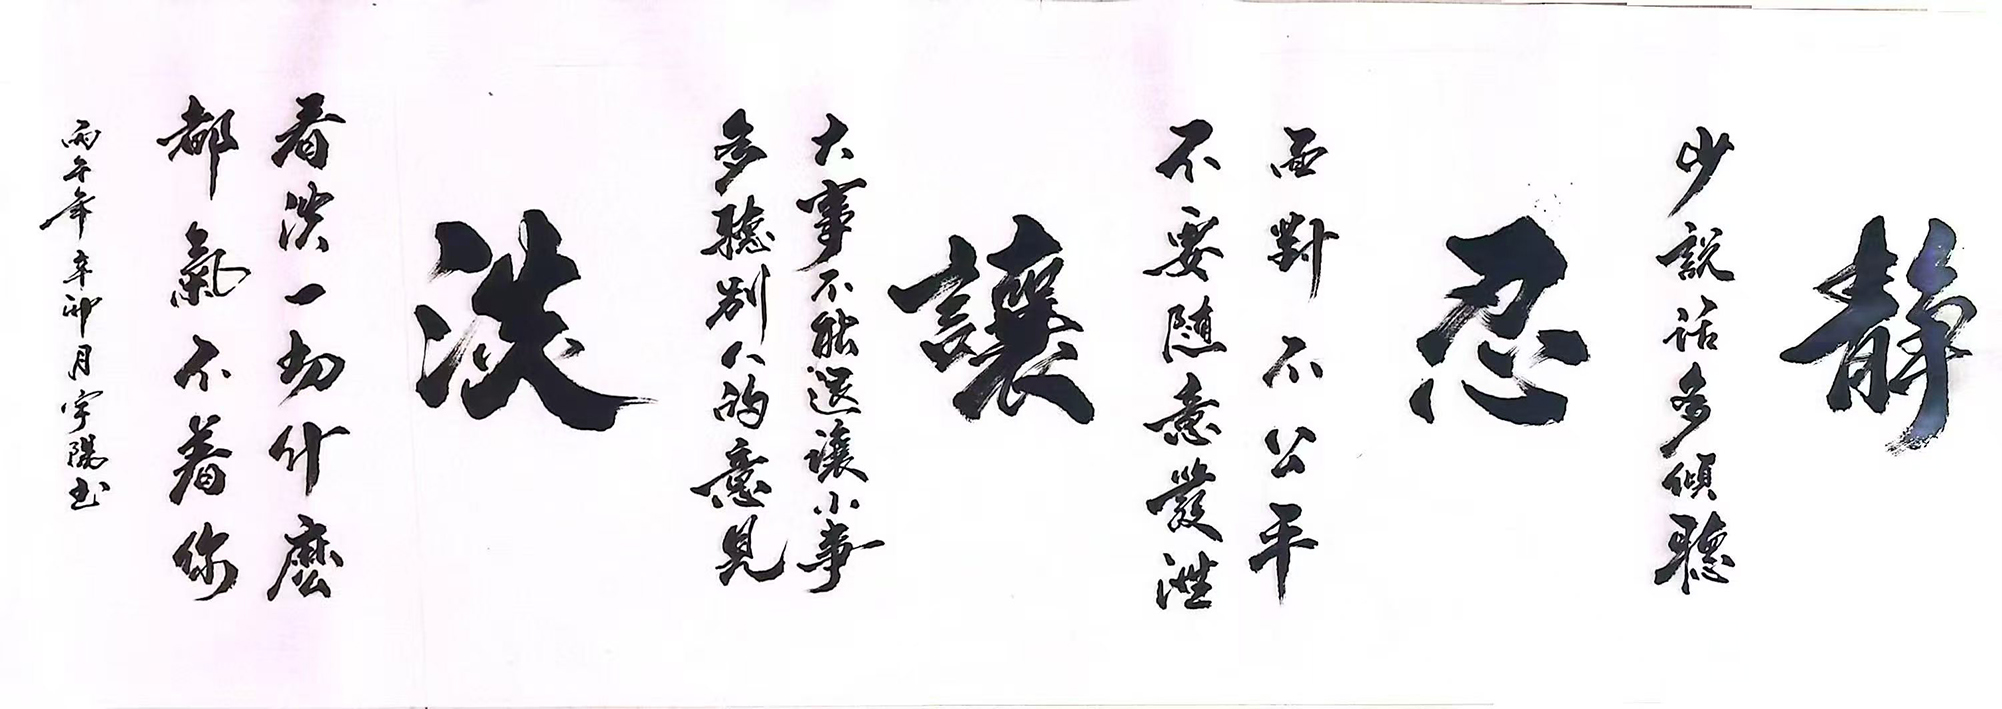 静
少説话多傾聽
忍
面對不公平
不要随意發泄
讓
大事不能退讓小事
多聽别人的意見
淡
看淡一切什麽
都氣不着你
丙午年辛卯月宇陽书